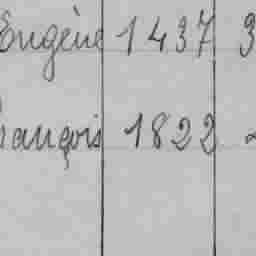 Eugène 1437 3
rançois 1822